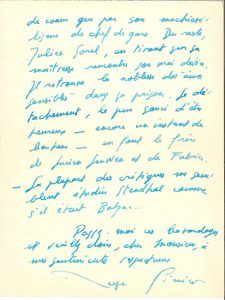 de coeur que par son machiavé-
lisme de chef de gare. Du reste,
Julien Sorel, en tirant sur sa
maîtresse remonte son vrai destin.
Il retrouve la noblesse des âmes
sensibles" dans sa prison. Le dé-
tachement, le peu souci d'être
heureux — encore un instant de
bonheur — en font le frère
de Lucien Leuwen et de Fabrice.
— La plupart des critiques me sem-
blent étudier Stendhal comme
s'il était Balzac...
Passez-moi ces bavardages
et veuillez croire, cher Monsieur, à
mes sentiments respectueux
Roger Nimier